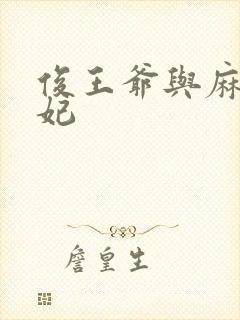 俊王爺與麻
妃
詹皇生